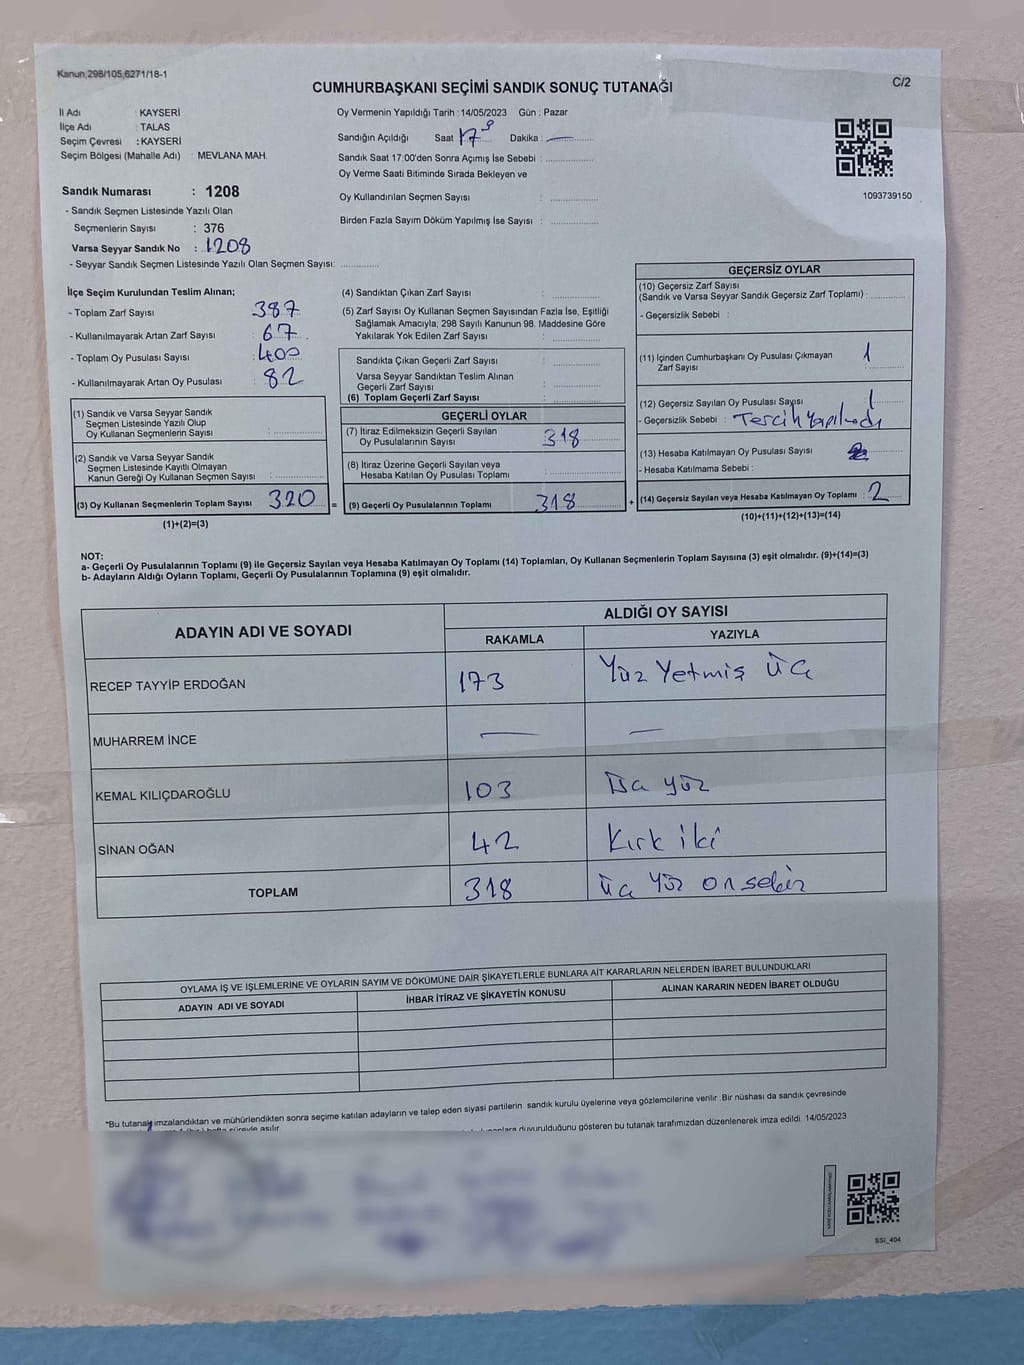 Kanun:298/105,6271/18-1
C/2
CUMHURBAŞKANI SEÇİMİ SANDIK SONUÇ TUTANAĞI
İl Adı : KAYSERİ
İlçe Adı : TALAS
Seçim Çevresi : KAYSERİ
Seçim Bölgesi (Mahalle Adı) : MEVLANA MAH.
Oy Vermenin Yapıldığı Tarih : 14/05/2023 Gün : Pazar
Sandığın Açıldığı Saat 17 Dakika :
Sandık Saat 17:00'den Sonra Açımış İse Sebebi :
Oy Verme Saati Bitiminde Sırada Bekleyen ve
Oy Kullandırılan Seçmen Sayısı :
Birden Fazla Sayım Döküm Yapılmış İse Sayısı :
1093739150
Sandık Numarası : 1208
- Sandık Seçmen Listesinde Yazılı Olan
Seçmenlerin Sayısı : 376
Varsa Seyyar Sandık No : 1208
- Seyyar Sandık Seçmen Listesinde Yazılı Olan Seçmen Sayısı:
İlçe Seçim Kurulundan Teslim Alınan;
- Toplam Zarf Sayısı : 387
- Kullanılmayarak Artan Zarf Sayısı : 67
- Toplam Oy Pusulası Sayısı : 400
- Kullanılmayarak Artan Oy Pusulası : 82
(1) Sandık ve Varsa Seyyar Sandık
Seçmen Listesinde Yazılı Olup
Oy Kullanan Seçmenlerin Sayısı :
(2) Sandık ve Varsa Seyyar Sandık
Seçmen Listesinde Kayıtlı Olmayan
Kanun Gereği Oy Kullanan Seçmen Sayısı :
(3) Oy Kullanan Seçmenlerin Toplam Sayısı 320
(1)+(2)=(3)
(4) Sandıktan Çıkan Zarf Sayısı :
(5) Zarf Sayısı Oy Kullanan Seçmen Sayısından Fazla İse, Eşitliği
Sağlamak Amacıyla, 298 Sayılı Kanunun 98. Maddesine Göre
Yakılarak Yok Edilen Zarf Sayısı :
Sandıkta Çıkan Geçerli Zarf Sayısı :
Varsa Seyyar Sandıktan Teslim Alınan
Geçerli Zarf Sayısı :
(6) Toplam Geçerli Zarf Sayısı :
GEÇERLİ OYLAR
(7) İtiraz Edilmeksizin Geçerli Sayılan
Oy Pusulalarının Sayısı : 318
(8) İtiraz Üzerine Geçerli Sayılan veya
Hesaba Katılan Oy Pusulası Toplamı :
= (9) Geçerli Oy Pusulalarının Toplamı : 318
GEÇERSİZ OYLAR
(10) Geçersiz Zarf Sayısı
(Sandık ve Varsa Seyyar Sandık Geçersiz Zarf Toplamı) :
- Geçersizlik Sebebi :
(11) İçinden Cumhurbaşkanı Oy Pusulası Çıkmayan
Zarf Sayısı : 1
(12) Geçersiz Sayılan Oy Pusulası Sayısı : 1
- Geçersizlik Sebebi : Tercih Yapılmadı
(13) Hesaba Katılmayan Oy Pusulası Sayısı :
- Hesaba Katılmama Sebebi :
+ (14) Geçersiz Sayılan veya Hesaba Katılmayan Oy Toplamı : 2
(10)+(11)+(12)+(13)=(14)
NOT:
a- Geçerli Oy Pusulalarının Toplamı (9) ile Geçersiz Sayılan veya Hesaba Katılmayan Oy Toplamı (14) Toplamları, Oy Kullanan Seçmenlerin Toplam Sayısına (3) eşit olmalıdır. (9)+(14)=(3)
b- Adayların Aldığı Oyların Toplamı, Geçerli Oy Pusulalarının Toplamına (9) eşit olmalıdır.
ADAYIN ADI VE SOYADI
ALDIĞI OY SAYISI
RAKAMLA YAZIYLA
RECEP TAYYİP ERDOĞAN 173 Yüz Yetmiş üç
MUHARREM İNCE — —
KEMAL KILIÇDAROĞLU 103 yüz
SİNAN OĞAN 42 Kırk iki
TOPLAM 318 üç yüz on
OYLAMA İŞ VE İŞLEMLERİNE VE OYLARIN SAYIM VE DÖKÜMÜNE DAİR ŞİKAYETLERLE BUNLARA AİT KARARLARIN NELERDEN İBARET BULUNDUKLARI
ADAYIN ADI VE SOYADI İHBAR İTİRAZ VE ŞİKAYETİN KONUSU ALINAN KARARIN NEDEN İBARET OLDUĞU
*Bu tutanak imzalandıktan ve mühürlendikten sonra seçime katılan adayların ve talep eden siyasi partilerin sandık kurulu üyelerine veya gözlemcilerine verilir. Bir nüshası da sandık çevresinde
süreyle asılır. duyurulduğunu gösteren bu tutanak tarafımızdan düzenlenerek imza edildi. 14/05/2023
SSI_404